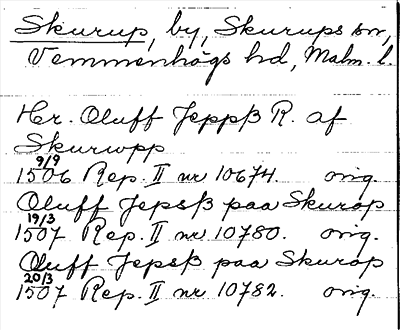 Skurup, by, Skurups sn,
Vemmenhögs hd, Malm. l.
Her. Oluff Jeppß R. af
Skurwpp
9/9
1506 Rep. II nr 10674. orig.
Oluff Jepsß paa Skurop
19/3
1507 Rep. II nr 10780. orig.
Oluff Jepsß paa Skurop
20/3
1507 Rep. II nr 10782. orig.